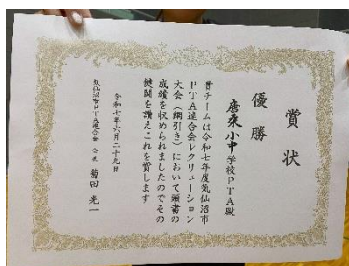 賞状
優勝
唐桑小中学校PTA殿
貴チームは令和七年度気仙沼市
PTA連合会レクリェーション
大会（綱引き）において頭書の
成績を収められましたのでその
健闘を讃えこれを賞します
令和七年六月二十九日
気仙沼市PTA連合会 会長 菊田光一